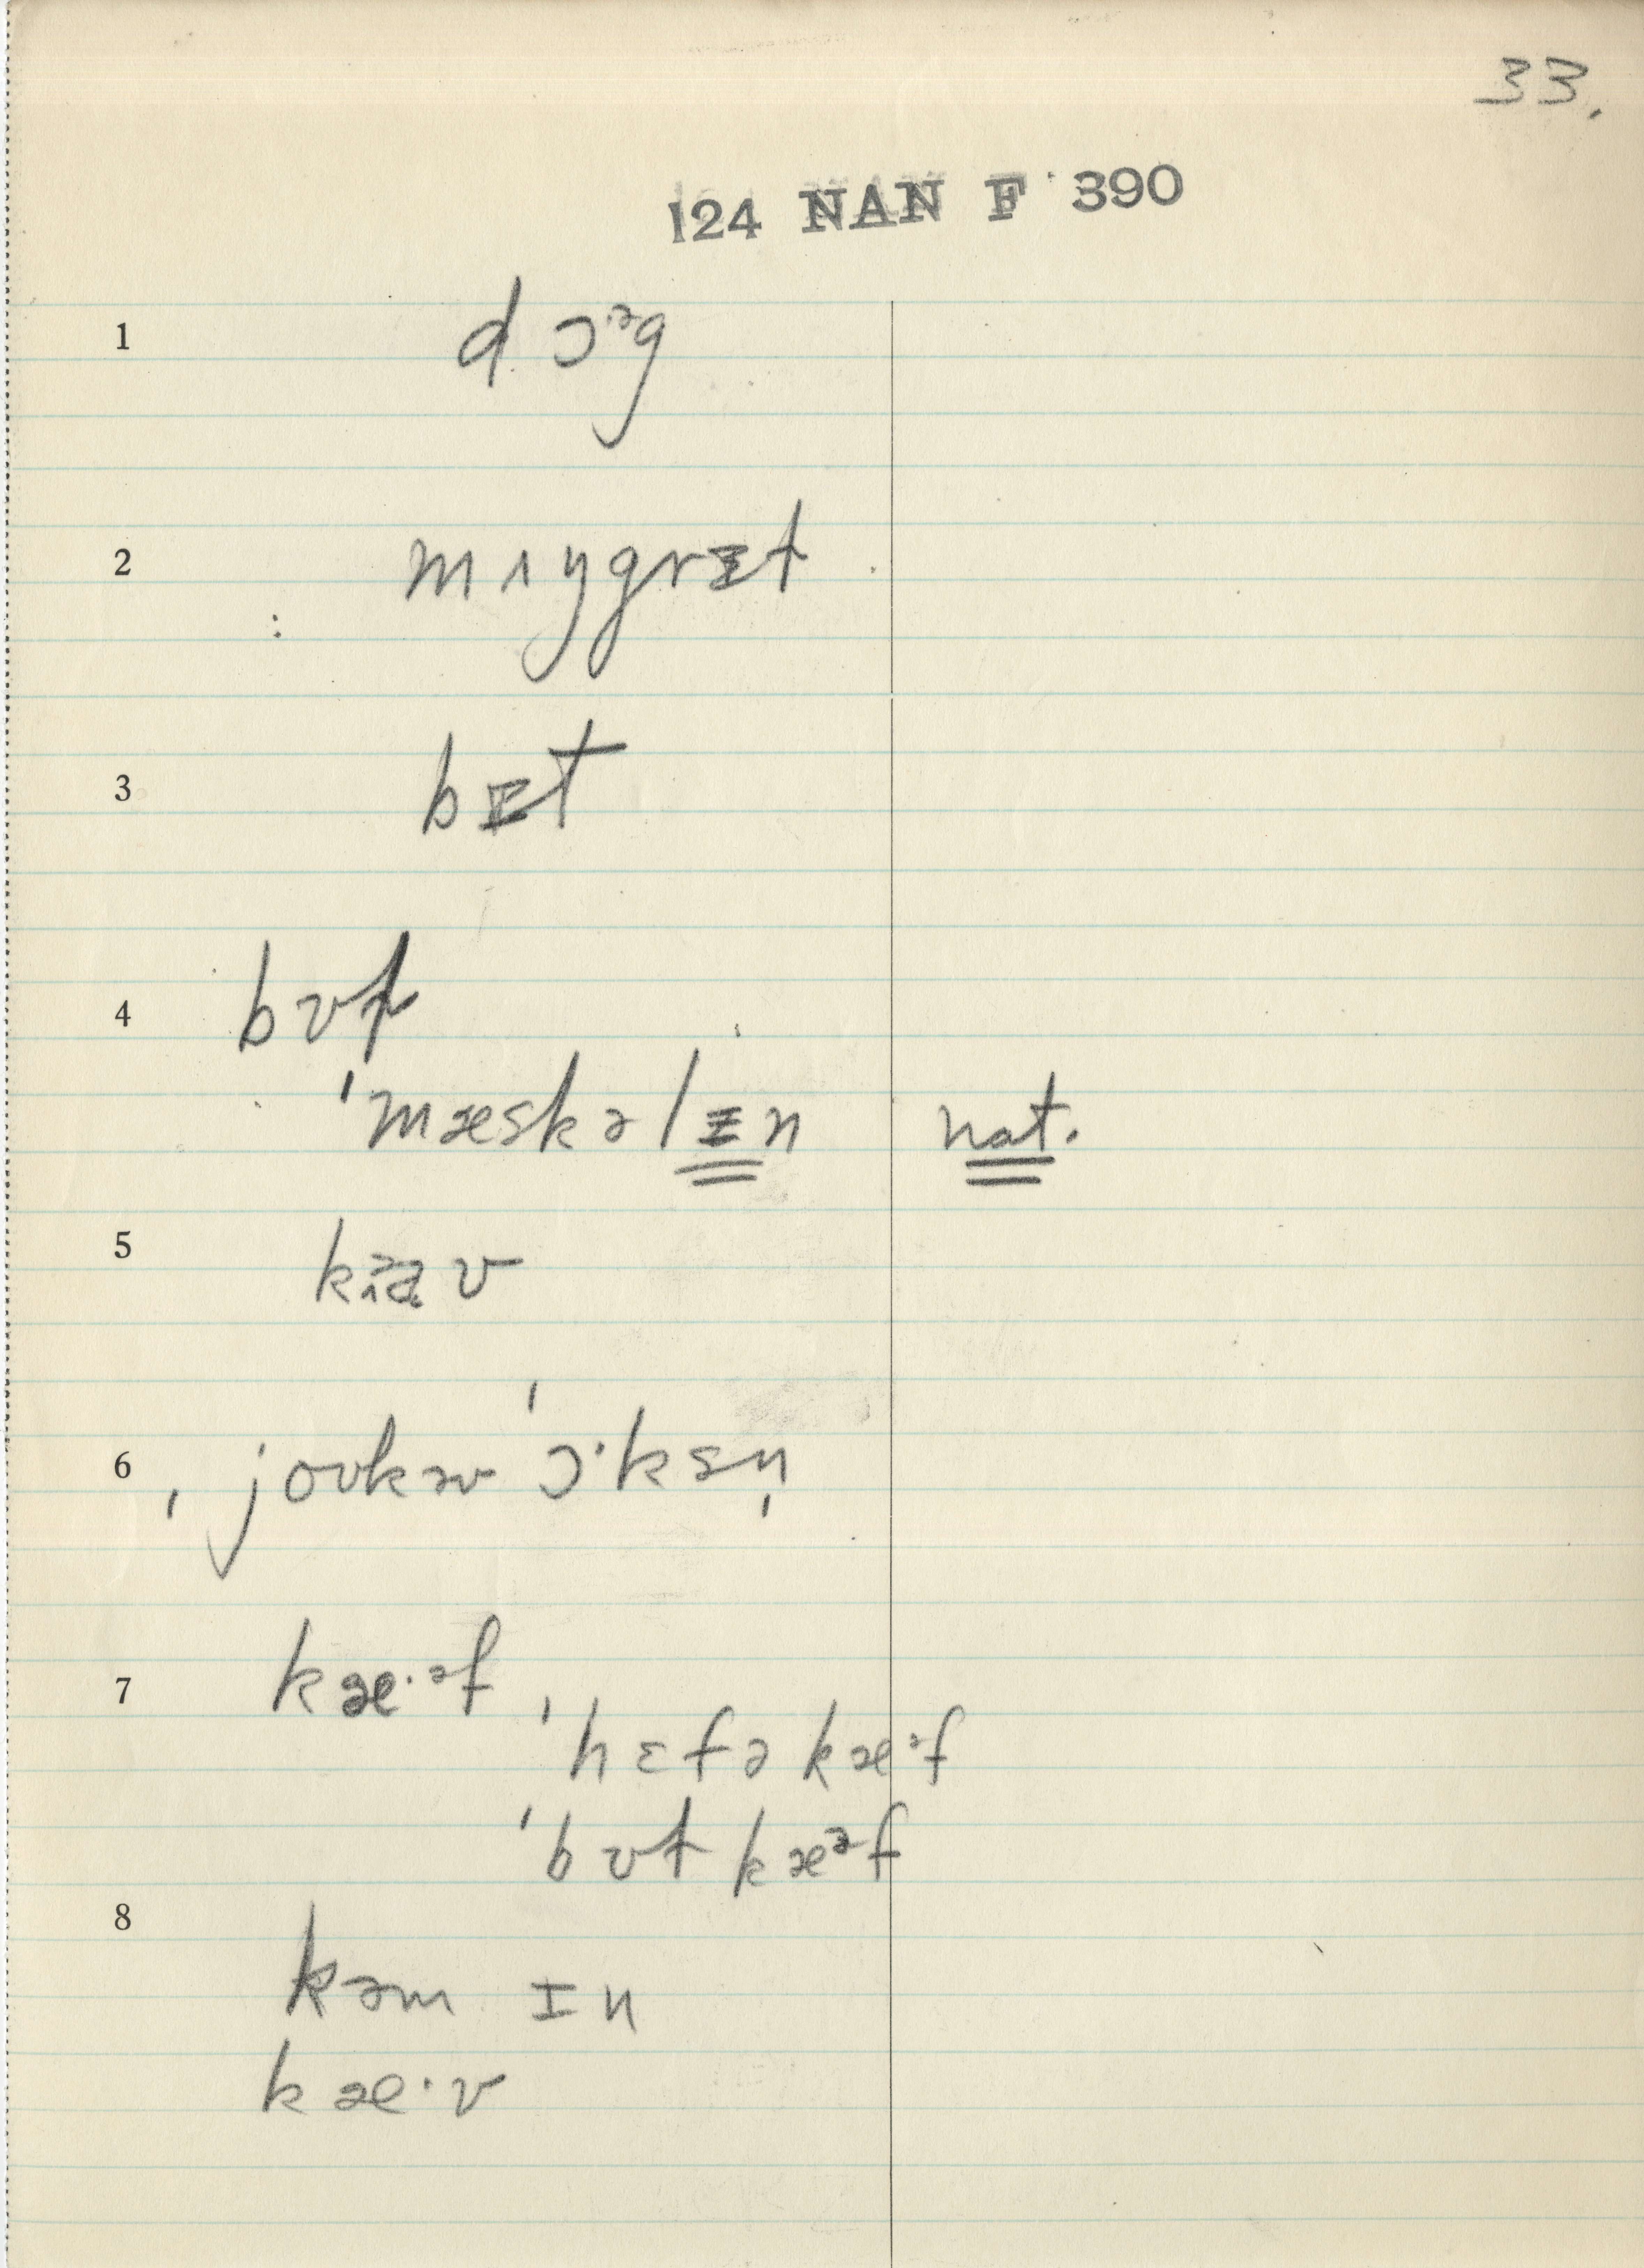 33.
124 NAN F 390
1 dɔᵊg
2 mʌŋgrɪt
3 bɪt
4 bʊl
ˈmæskəlɪn nat.
5
6 ˌjoʊkəʊˈɔ·ksn̩
7 kæ·ᵊf
ˈhɛfəkæ·ᵊf
ˈbʊtkæᵊf
8 kəm ɪn
kæ·v